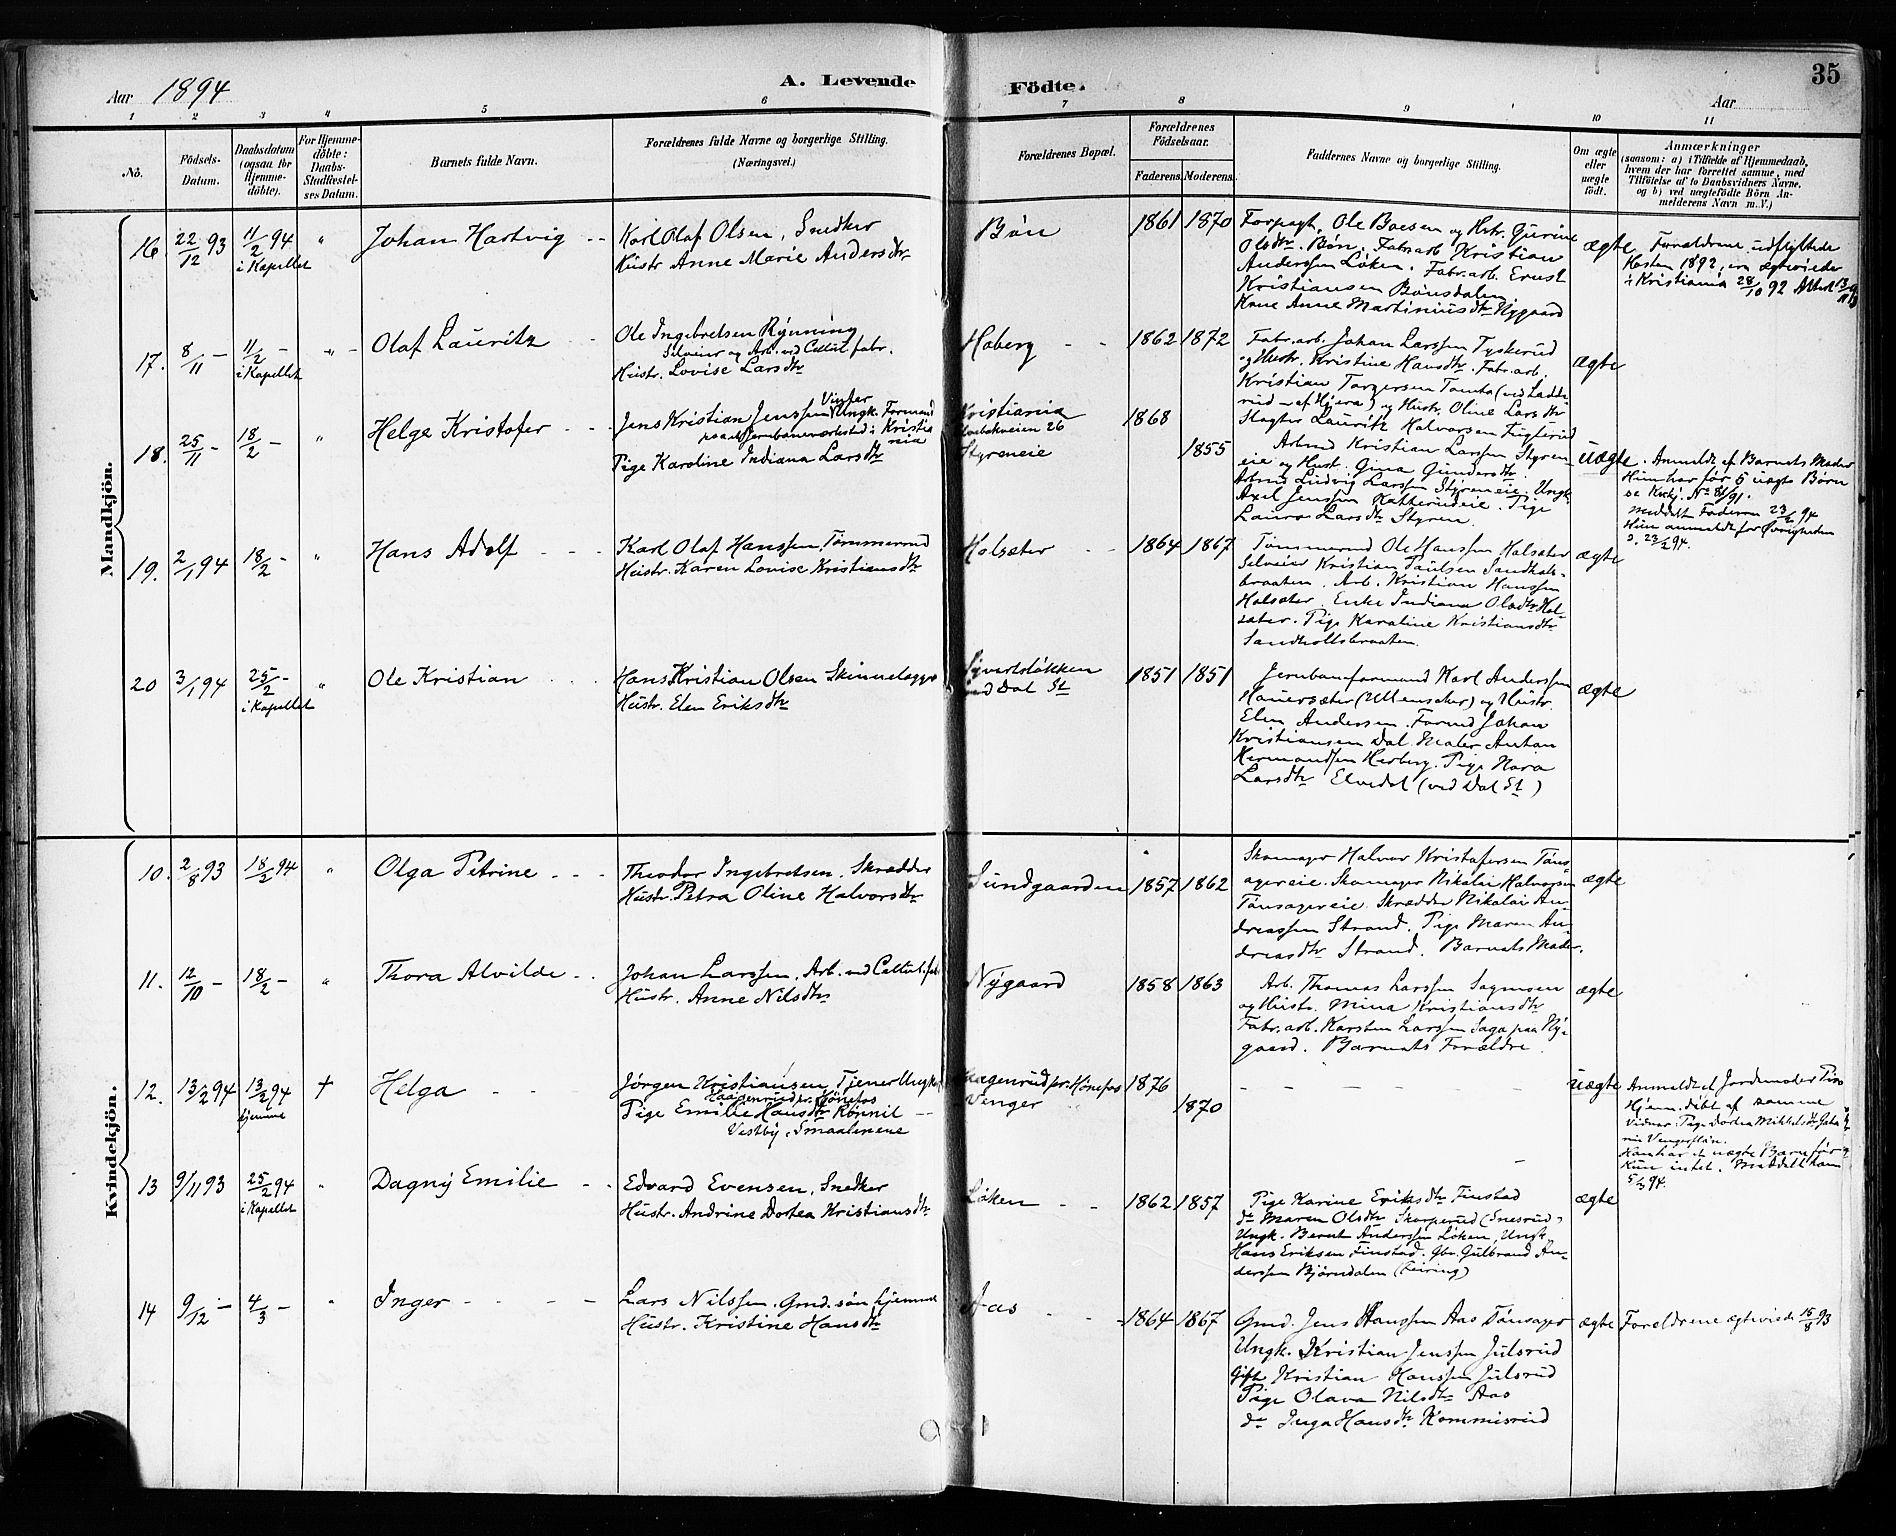 35
Aar 1894 A. Levende Födte. Aar
1 2 3 4 5 6 7 8 9 10 11
No.
Födsels-Datum.
Daabsdatum (ogsaa for Hjemme-döbte).
For Hjemme-döbte: Daabs-Stadfæstel-ses Datum.
Barnets fulde Navn.
Forældrenes fulde Navne og borgerlige Stilling.
(Næringsvei.)
Forældrenes Bopæl.
Forældrenes Födselsaar.
Faderens. Moderens.
Faddernes Navne og borgerlige Stilling.
Om ægte eller uægte födt.
Anmærkninger
(saasom: a) i Tilfælde af Hjemmedaab,
hvem der har forrettet samme, med
Tilföielse af to Daabsvidners Navne,
og b) ved uægtefödte Börn An-
melderens Navn m. V.)
Mandkjön.
16. 22/12 93 11/2 94 i Kapellet " Johan Hartvig
Karl Olaf Olsen, Snedker
Hustr. Anne Marie Andersdtr
Bøn 1861 1870
Forpagt. Ole Boesen og Hstr. Gurine
Olsdtr. Bøn. Fabr.arb. Kristian
Anderssen Løken. Fabr.arb. Ernst
Kristiansen Bønsdalen
Kone Anne Martiniusdtr Nygaard
ægte
Forældrene udflyttede
Høsten 1892, er ægteviede
i Kristiania 28/10 92
17. 8/11 – 11/2 – i Kapellet " Olaf Lauritz
Ole Ingebretsen Rynning
Selveier og Arb. ved Cellul.fabr.
Hustr. Lovise Larsdtr
Hoberg 1862 1872
Fabr.arb. Johan Larssen Tyskerud
og Hustr. Kristine Hansdtr. Fabr.arb.
Kristian Torgersen Tomta (ved Ladde-
rud – af Hjera) og Hustr. Oline Larsdtr
Slagter Lauritz Halvorsen Fuglerud
ægte
18. 25/11 – 18/2 – " Helge Kristofer
Jens Kristian Jenssen Vinter Ungk. Formand
paa Jernbaneværksted i Kristiania
Pige Karoline Indiana Larsdtr
Kristiania
26
Styreneie
1868 1855
Arbmd Kristian Larssen Styren-
eie og Hust. Gina Gundersdtr.
Arbmd Ludvig Larssen Styreneie, Ungk.
Axel Jenssen Katterudeie. Pige
Laura Larsdtr Styren.
uægte.
Anmeldt af Barnets Moder
Hun har før 5 uægte Børn
se Kirkj. No 81/91.
Meddelt Faderen 23/2 94
Hun anmeldt for Øvrigheden
d. 23/2 94.
19. 2/1 94 18/2 – " Hans Adolf
Karl Olaf Hanssen, Tømmermd
Hustr. Karen Lovise Kristiansdtr
Holsæter 1864 1867
Tømmermd Ole Hanssen Holsæter
Selveier Kristian Paulsen Sandholt-
braaten. Arb. Kristian Hanssen
Holsæter. Enke Indiana Olsdtr Hol-
sæter. Pige Karoline Kristiansdtr
Sandholtbraaten.
ægte
20 3/1 94 25/2 – i Kapellet " Ole Kristian
Hans Kristian Olsen Skinnelægger
Hustr. Elen Eriksdtr
Syverdsløkken
ved Dal St
1851 1851
Jernbaneformand Karl Anderssen
Hauersæter (Ullensaker) og Hustr.
Elen Andersen. Formd Johan
Kristiansen Dal. Maler Anton
Hermandsen Herberg. Pige Nora
Larsdtr Elvedal (ved Dal St)
ægte
Kvindekjön.
10. 2/8 93 18/2 94 " Olga Petrine
Theodor Ingebretsen, Skrædder
Hustr. Petra Oline Halvorsdtr
Sundgaarden 1857 1862
Skomager Halvor Kristofersen Tøns-
agereie. Skomager Nikolai Halvorsen
Tønsagereie. Skrædder Nikolai An-
dreassen Strand. Pige Maren An-
dreasdtr Strand. Barnets Moder.
ægte
11. 12/10 – 18/2 – " Thora Alvilde
Johan Larssen, Arb. ved Cellul.fabr
Hustr. Anne Nilsdtr
Nygaard 1858 1863
Arb. Thomas Larssen Sagmoen
og Hustr. Mina Kristiansdtr
Fabr.arb. Karsten Larssen Saga paa Ny-
gaard. Barnets Forældre.
ægte
12. 13/2 94 13/2 94 hjemme † Helga
Jørgen Kristiansen, Tjener Ungk.
Haagenrud pr. Hønefos
Pige Emilie Hansdtr Rønnil
Vestby, Smaalenene
Haagenrud pr. Hønefos
Venger
1876 1870
uægte
Anmeldt af Jordemoder
Hjem. døbt af samme
Vidner: Pige Dortea Mikkelsdtr
Han har et uægte Barn før
Hun intet. Meddelt ham
5/3 94.
13 9/11 93 25/2 94 i Kapellet " Dagny Emilie
Edvard Evensen, Snedker
Hustr. Andrine Dortea Kristiansdtr
Løken 1862 1857
Pige Karine Eriksdtr Finstad
do Maren Olsdtr Skorperud (Snesrud)
Ungk. Bernt Anderssen Løken, Ungk.
Hans Eriksen Finstad. Gbr. Gulbrand An-
derssen Bjørndalen (Feiring)
ægte
14 9/12 – 4/3 – " Inger
Lars Nilssen, Grmd. søn hjemme
Hustr. Kristine Hansdtr
Aas 1864 1867
Grmd. Jens Hanssen Aas Tønsager
Ungk. Kristian Jenssen Julsrud
Gift Kristian Hanssen Julsrud
Pige Olava Nilsdtr Aas
do Inga Hansdtr Kommisrud
ægte
Forældrene ægteviede 15/8 93